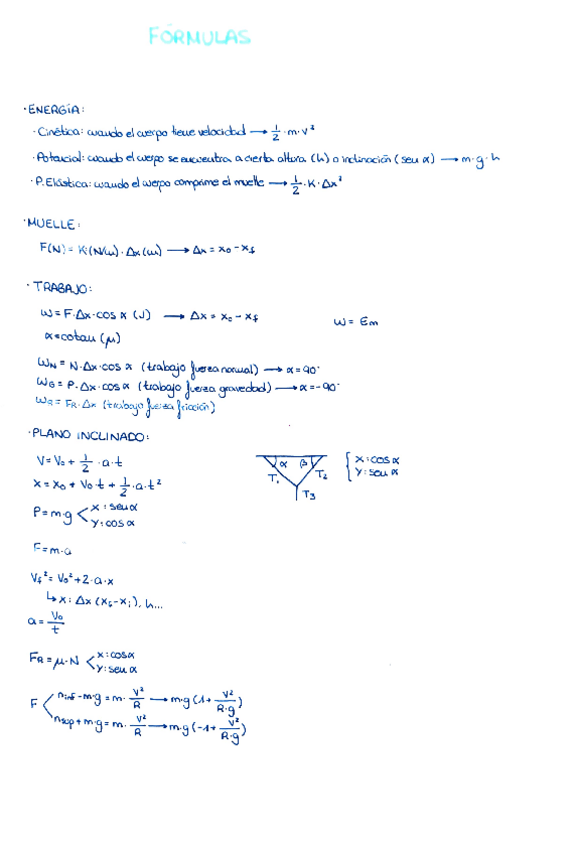 FÓRMULAS
·ENERGÍA:
·Cinética: cuando el cuerpo tiene velocidad → 1/2·m·v²
·Potencial: cuando el cuerpo se encuentra a cierta altura (h) o inclinación (sen α) → m·g·h
·P. Elástica: cuando el cuerpo comprime el muelle → 1/2·K·Δx²
·MUELLE:
F(N) = K(N/m)·Δx(m) → Δx = x₀ - x_f
·TRABAJO:
W = F·Δx·cos α (J) → Δx = x₀ - x_f W = Em
α = cotan (μ)
W_N = N·Δx·cos α (trabajo fuerza normal) → α = 90°
W_G = P·Δx·cos α (trabajo fuerza gravedad) → α = -90°
W_R = F_R·Δx (trabajo fuerza fricción)
·PLANO INCLINADO:
V = V₀ + 1/2·a·t
x = x₀ + V₀·t + 1/2·a·t²
P = m·g < x: sen α
y: cos α
α β T₁ T₂ T₃
{ x: cos α
y: sen α
F = m·a
V_f² = V₀² + 2·a·x
↳ x: Δx (x_f - x_i), h...
a = V₀/t
F_R = μ·N < x: cos α
y: sen α
F < n_inf - m·g = m·V²/R → m·g (1 + V²/R·g)
n_sup + m·g = m·V²/R → m·g (-1 + V²/R·g)